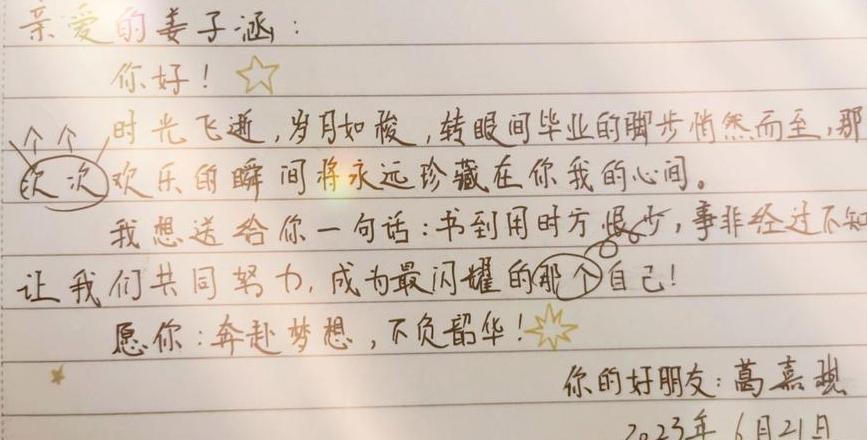 亲爱的姜子涵：
你好！
时光飞逝，岁月如梭，转眼间毕业的脚步悄然而至，那
次次欢乐的瞬间将永远珍藏在你我的心间。
我想送给你一句话：书到用时方恨少，事非经过不知
让我们共同努力，成为最闪耀的那个自己！
愿你：奔赴梦想，不负韶华！
你的好朋友：葛嘉
2023年6月21日